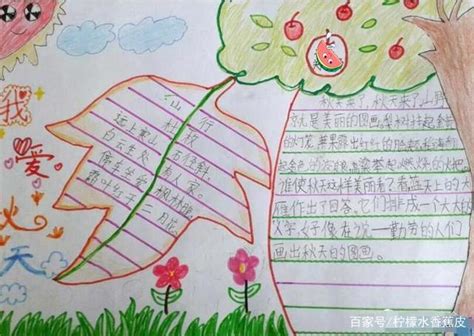 我
爱
秋
天
山行
杜牧
远上寒山石径斜,
白云生处有人家。
停车坐爱枫林晚,
霜叶红于二月花。
秋天来了,秋天来了,山野
就是美丽的图画。梨树挂起金
的灯笼,苹果露出红红的脸颊,稻海翻
起金色的波浪,高粱举起燃烧的火把
谁使秋天这样美丽?看蓝天上的大
雁作出了回答,它们排成一个大大的
人字,好像在说——勤劳的人们
画出秋天的图画。
百家号/柠檬水香蕉皮